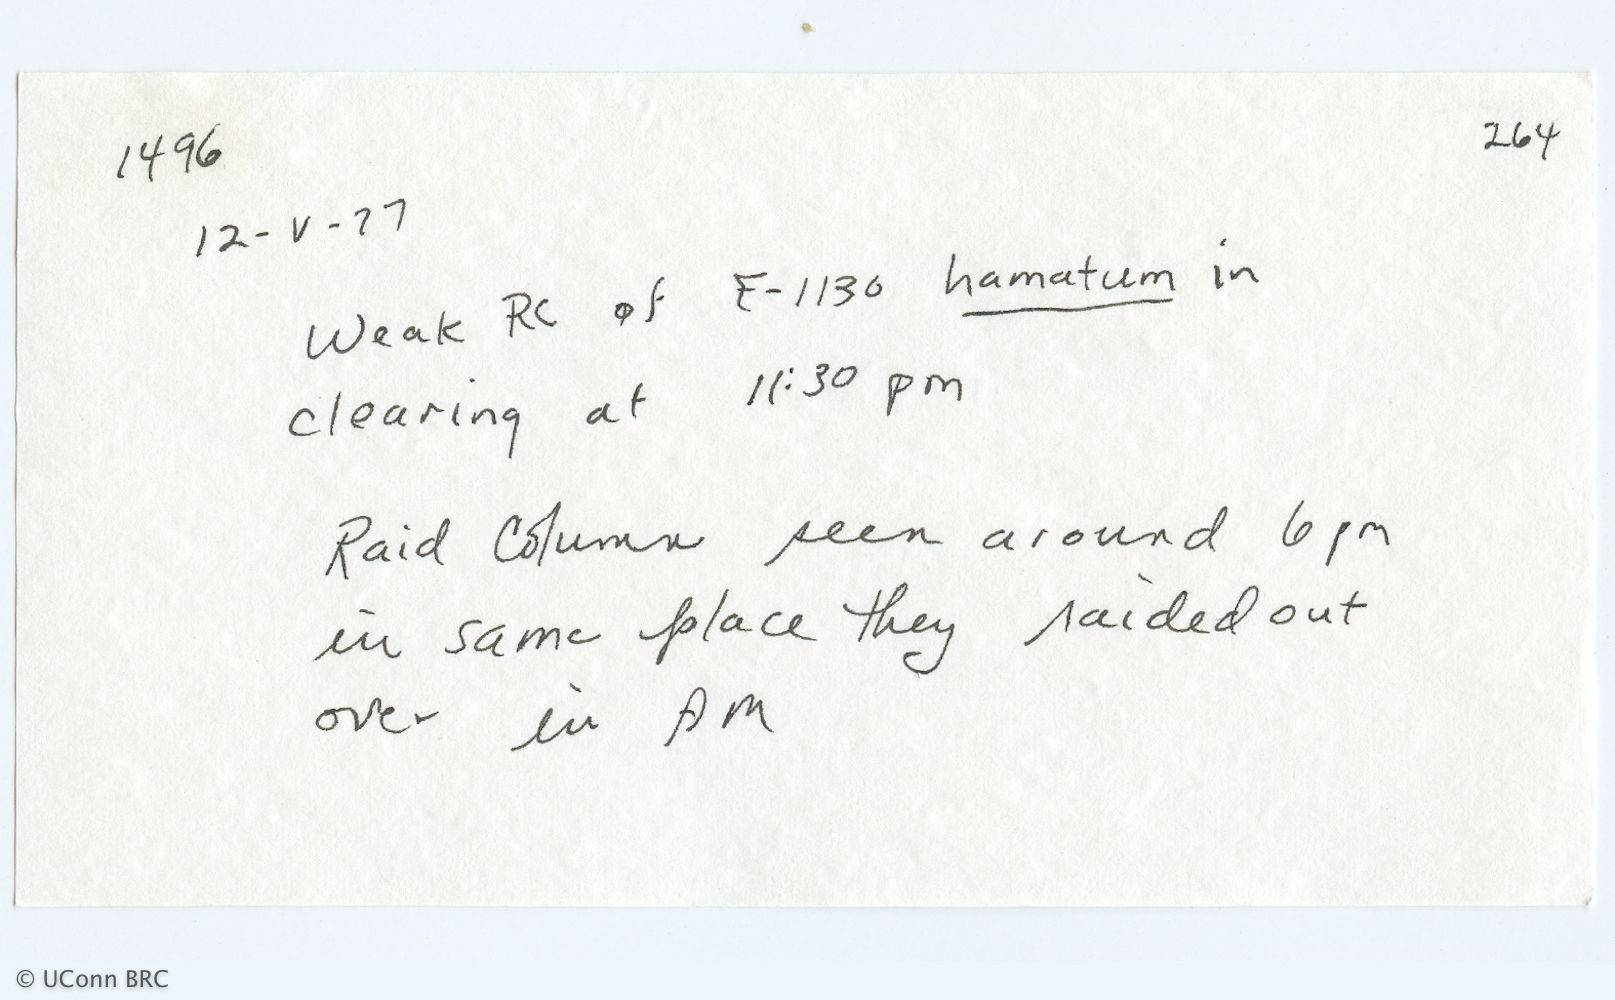 1496
264
12-V-77
Weak RC of E-1130 hamatum in
clearing at 11:30 pm
Raid Column seen around 6 pm
in same place they raided out
over in AM
© UConn BRC